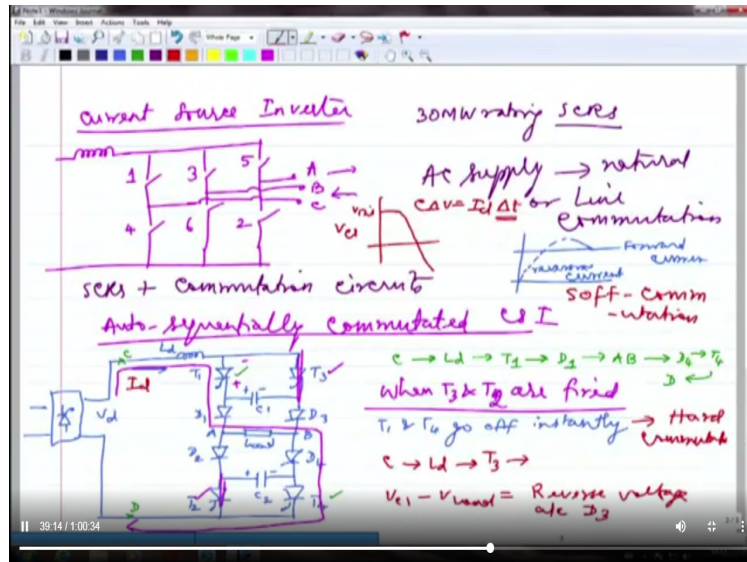 Note1 - Windows Journal
File Edit View Insert Actions Tools Help
Whole Page
B I
Current Source Inverter
30MW rating SCRs
1 3 5 A
B
C
4 6 2
AC supply → natural
or Line
commutation
CΔV = Id Δt
Vc1
Forward
current
reverse
current
soff-comm
-utation
SCRs + Commutation circuits
Auto-sequentially commutated CSI
C → Ld → T1 → D1 → AB → D4 → T4
D
When T3 & T2 are fired
T1 & T4 go off instantly → Hard
Commutate
C → Ld → T3 →
Vc1 - Vload = Reverse voltage
a/c D3
C Ld
Id
Vd
T1 T3
+ -
C1
D1 D3
A Load B
D2 D4
+ -
C2
T2 T4
D
39:14 / 1:00:34